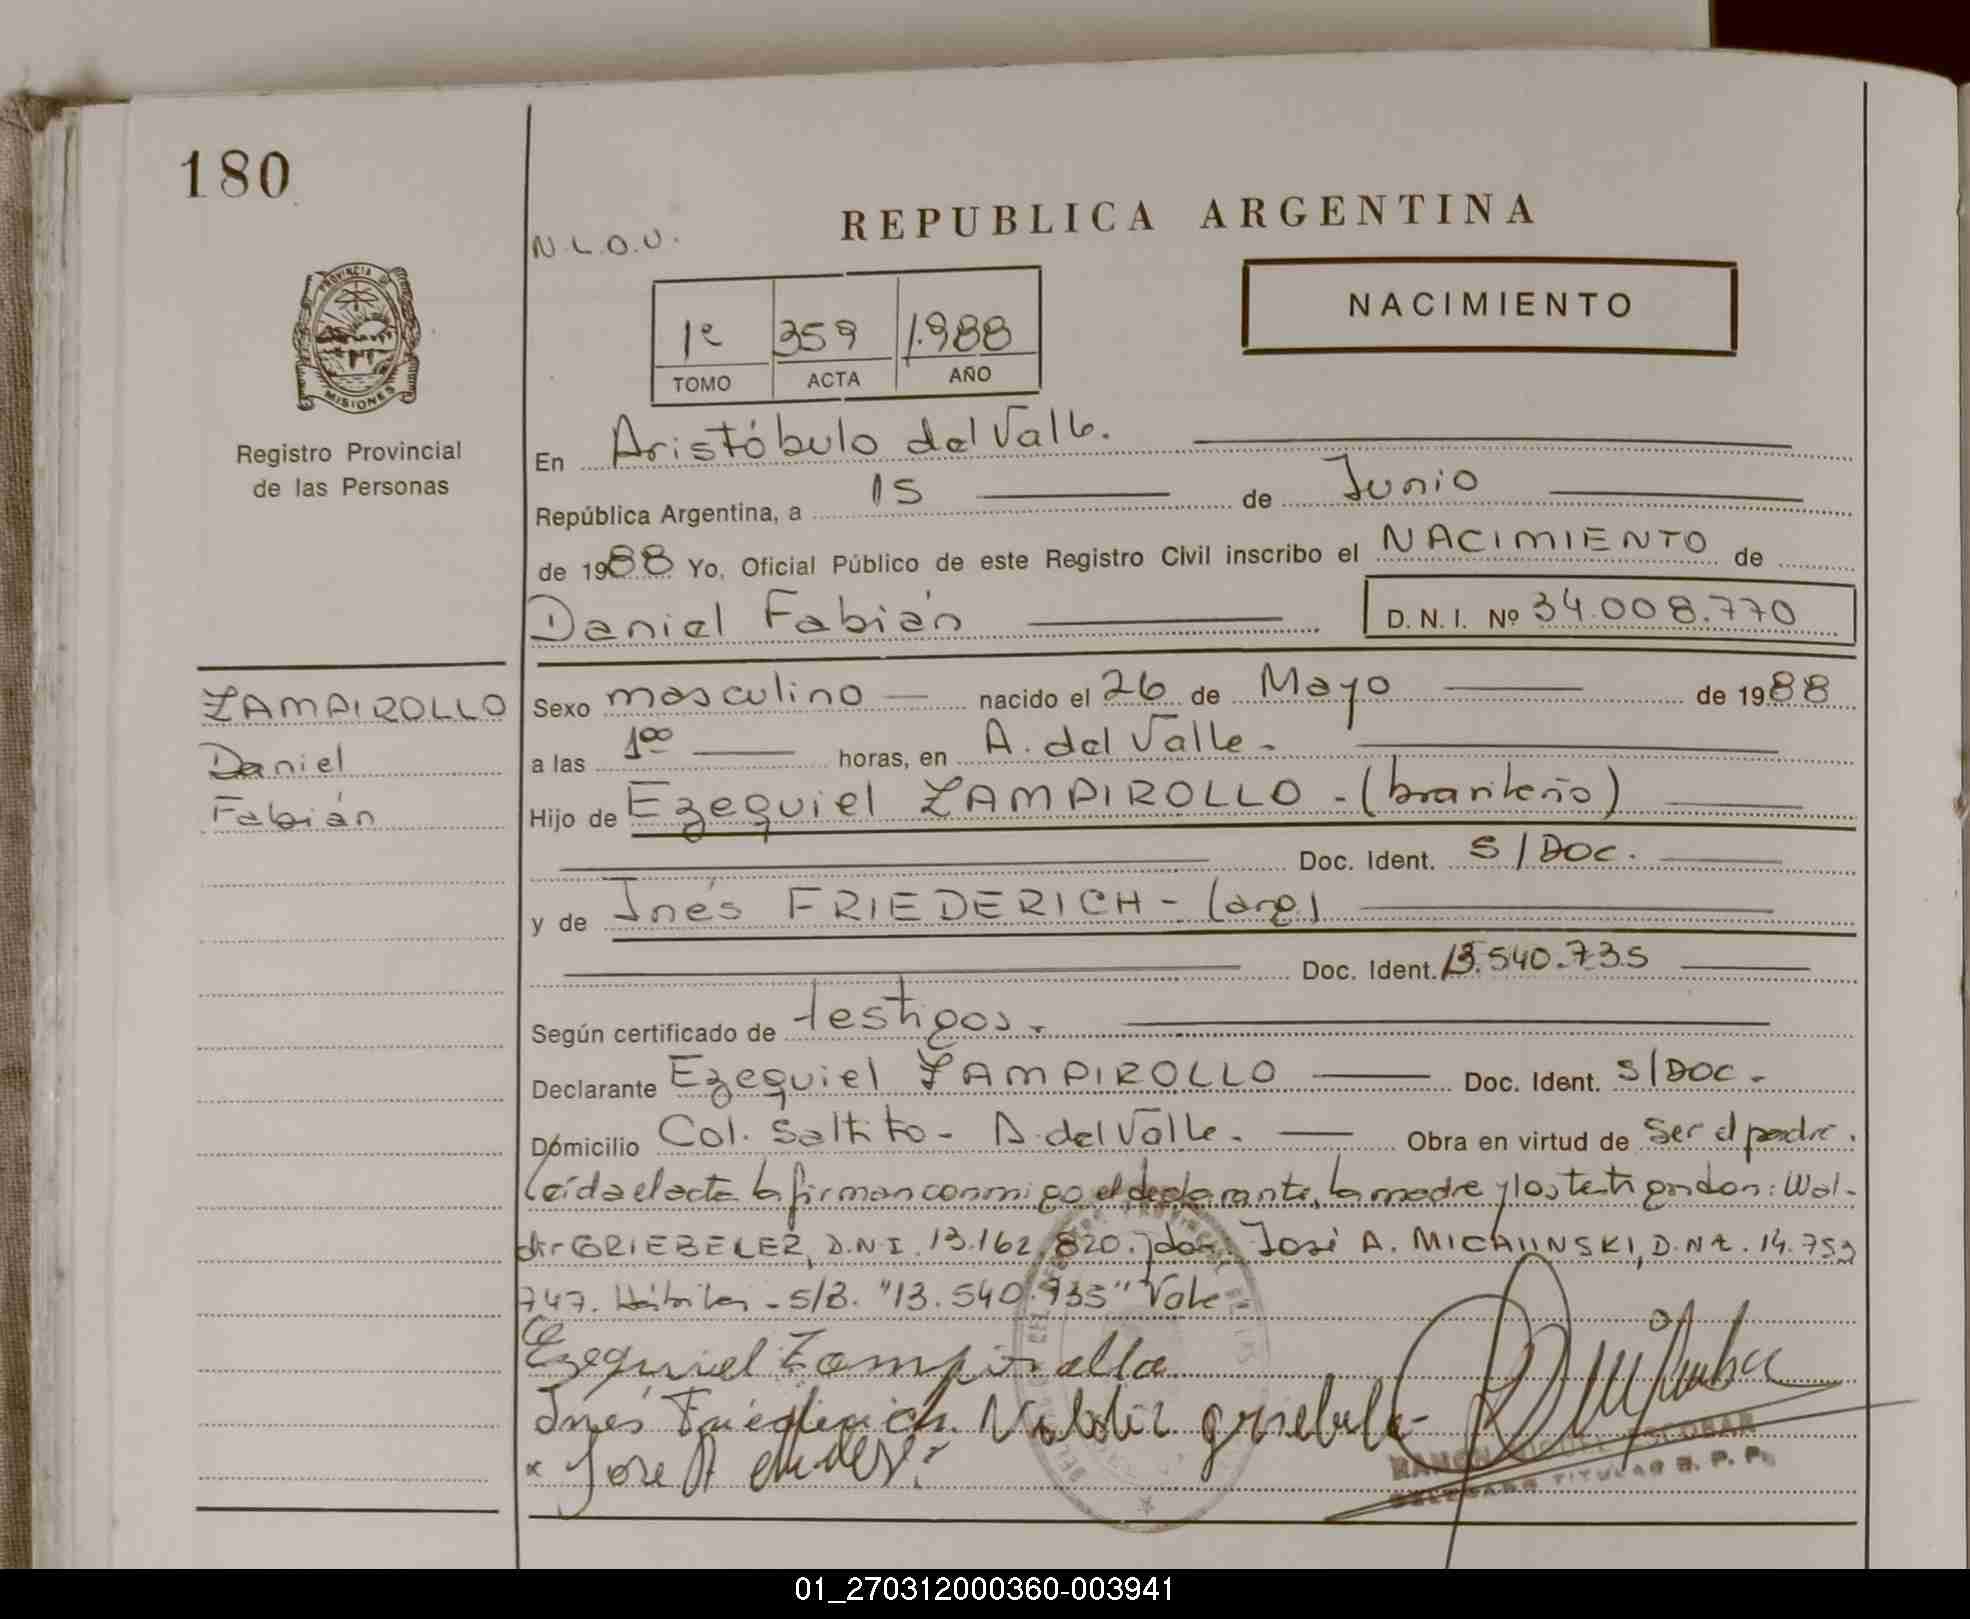 180
REPUBLICA ARGENTINA
N.L.O.U.
NACIMIENTO
PROVINCIA DE
MISIONES
1º 359 1.988
TOMO ACTA AÑO
Registro Provincial
de las Personas
En Aristóbulo del Valle.
República Argentina, a 15 de Junio
de 1988 Yo, Oficial Público de este Registro Civil inscribo el NACIMIENTO de
Daniel Fabián D.N.I. Nº 34.008.770
ZAMPIROLLO
Daniel
Fabián
Sexo masculino nacido el 26 de Mayo de 1988
a las 1⁰⁰ horas, en A. del Valle.
Hijo de Ezequiel ZAMPIROLLO - (brasileño)
Doc. Ident. S/DOC.
y de Inés FRIEDERICH - (arg)
Doc. Ident. 13.540.735
Según certificado de testigos.
Declarante Ezequiel ZAMPIROLLO Doc. Ident. S/DOC.
Domicilio Col. Saltito - A. del Valle. Obra en virtud de Ser el padre.
Leída el acta la firman conmigo el declarante, la madre y los testigos don: Wal-
dir GRIEBELER, D.N.I. 13.162.820. y don. José A. MICHINSKI, D.N.I. 14.759
747. Hábiles - S/B. "13.540.735" Vale
Ezequiel Zampirollo
Inés Friederich. Valdir griebele-
José A
ESCOBAR
DELEGADO TITULAR R. P. P.
01_270312000360-003941